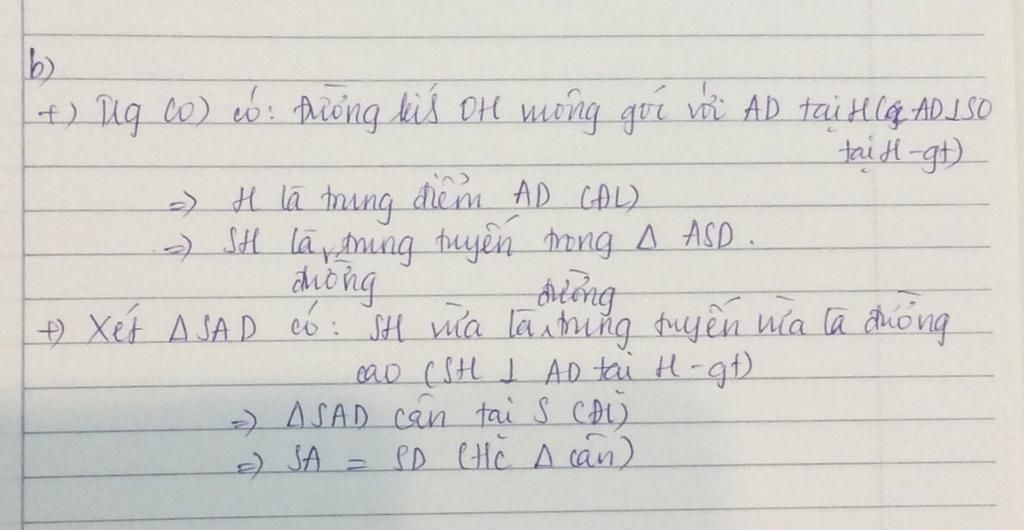 b)
+) Trg (O) có: đường kính OH vuông góc với AD tại H (AD⊥SO
tại H - gt)
=> H là trung điểm AD (ĐL)
=> SH là đường trung tuyến trong Δ ASD.
+) Xét ΔSAD có: SH vừa là đường trung tuyến vừa là đường
cao (SH ⊥ AD tại H - gt)
=> ΔSAD cân tại S (ĐL)
=> SA = SD (Hc Δ cân)